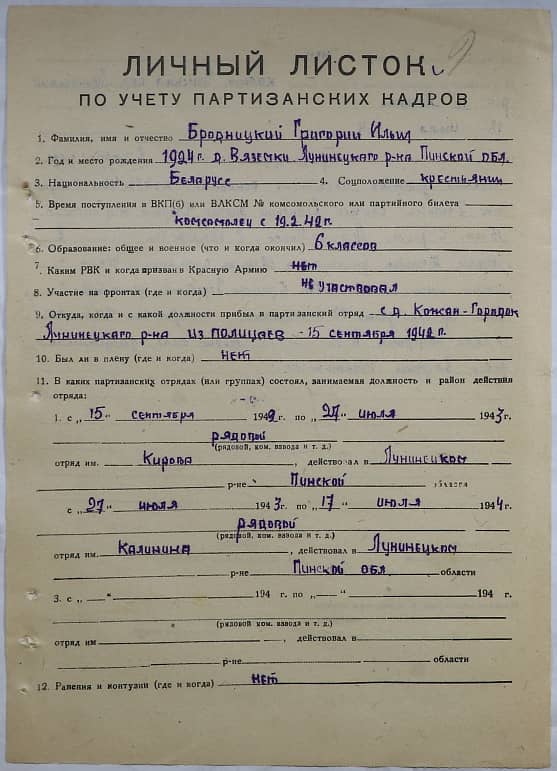 ЛИЧНЫЙ ЛИСТОК
ПО УЧЕТУ ПАРТИЗАНСКИХ КАДРОВ
1. Фамилия, имя и отчество Бродницкий Григорий Ильич
2. Год и место рождения 1924 г. д. Вяземки Лунинецкого р-на Пинской обл.
3. Национальность Беларусс 4. Соцположение крестьянин
5. Время поступления в ВКП(б) или ВЛКСМ № комсомольского или партийного билета
комсомолец с 19.2.42 г.
6. Образование: общее и военное (что и когда окончил) 6 классов
7. Каким РВК и когда призван в Красную Армию нет
8. Участие на фронтах (где и когда) не участвовал
9. Откуда, когда и с какой должности прибыл в партизанский отряд с д. Кожан-Городок
Лунинецкого р-на из полицаев - 15 сентября 1942 г.
10. Был ли в плену (где и когда) нет
11. В каких партизанских отрядах (или группах) состоял, занимаемая должность и район действия
отряда:
1. с „15" сентября 1942 г. по „27" июля 1943 г.
рядовой
(рядовой, ком. взвода и т. д.)
отряд им. Кирова, действовал в Лунинецком
р-не Пинской области
с „27" июля 1943 г. по „17" июля 1944 г.
рядовой
(рядовой, ком. взвода и т. д.)
отряд им. Калинина, действовал в Лунинецком
р-не Пинской обл области
3. с „—" 194 г. по „—" 194 г.
(рядовой ком. взвода и т. д.)
отряд им , действовал в
р-не области
12. Ранения и контузии (где и когда) нет